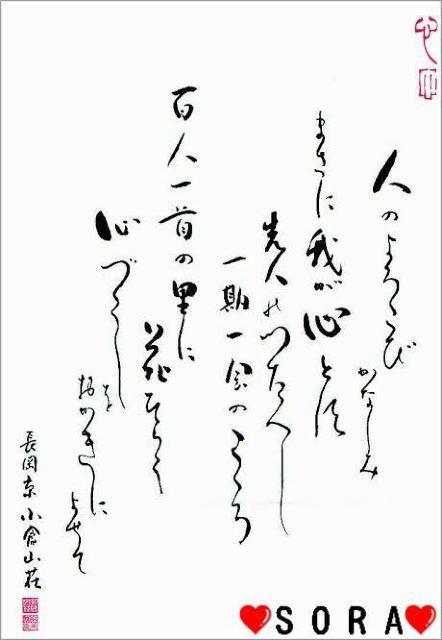 人のよろこび
かなしみ
まさに我が心とす
先人のつたへし
一期一会のこころ
百人一首の里に
花ひらく
心づくし
を
おかきに
よせて
長岡京 小倉山荘
SORA